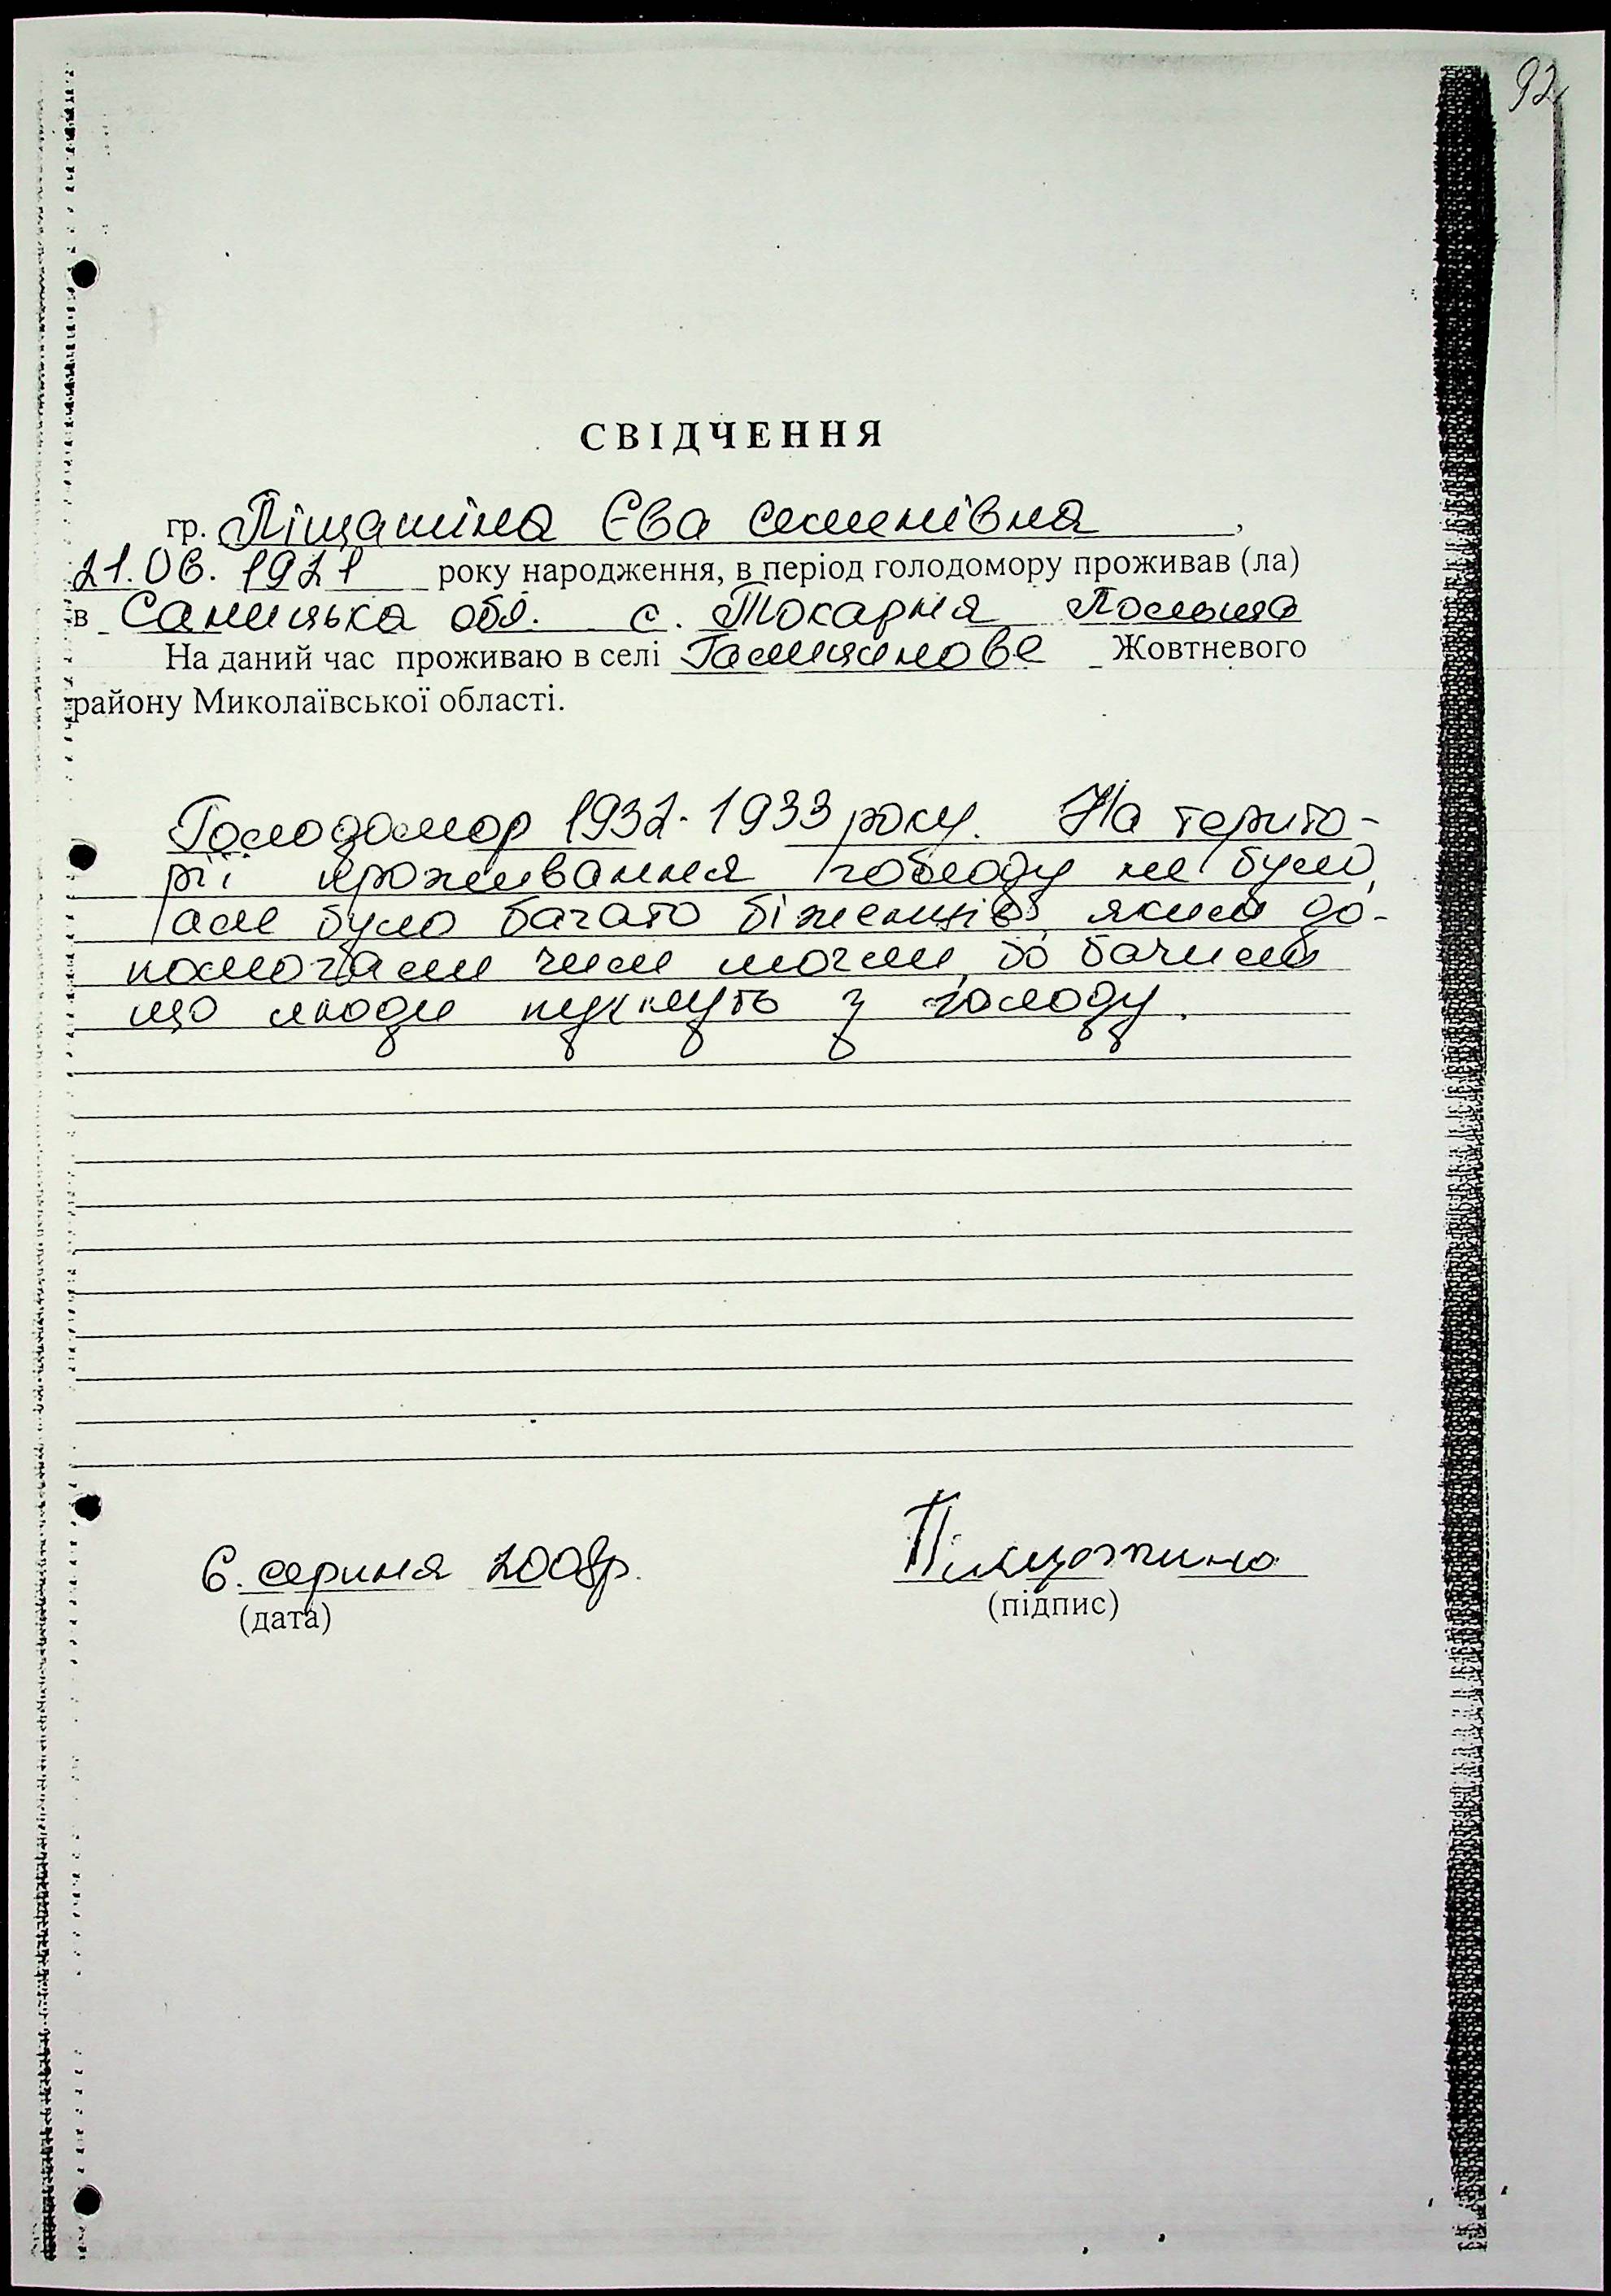 92
СВІДЧЕННЯ
гр. Піщатіна Єва Семенівна,
21.06.1921 року народження, в період голодомору проживав (ла)
в Саницька обл. с. Токарня Польща
На даний час проживаю в селі Галицинове Жовтневого
району Миколаївської області.
Голодомор 1932-1933 року. На терито-
рії проживання голоду не було,
але було багато біженців, яким до-
помогали чим могли, бо бачили
що люди пухнуть з голоду.
6. серпня 2008р.
(дата)
(підпис)